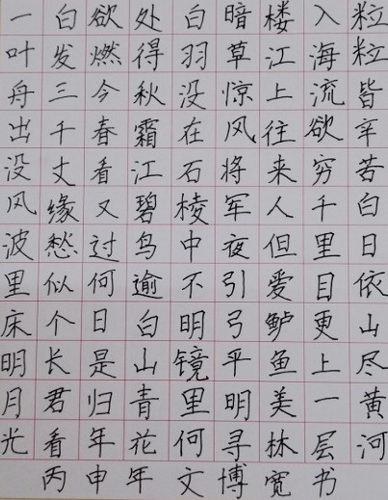 粒粒皆辛苦白日依山尽黄河
入海流欲穷千里目更上一层
楼江上往来人但爱鲈鱼美林
暗草惊风将军夜引弓平明寻
白羽没在石棱中不明镜里何
处得秋霜江碧鸟逾白山青花
欲燃今春看又过何日是归年
白发三千丈缘愁似个长君看
一叶舟出没风波里床明月光
丙申年文博宽书